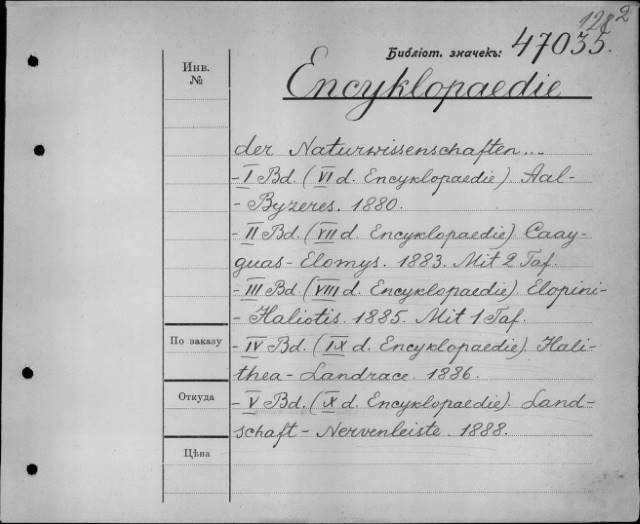 128 2
Библіот. значекъ: 47035.
Инв.
№
Encyklopaedie
der Naturwissenschaften...
- I Bd. (VI d. Encyklopaedie). Aal-
- Byzeres. 1880.
- II Bd. (VII d. Encyklopaedie) Caay-
guas - Elomys. 1883. Mit 2 Taf.
- III Bd (VIII d. Encyklopaedie) Elopini-
- Haliotis. 1885. Mit 1 Taf.
По заказу
- IV Bd. (IX d. Encyklopaedie). Hali-
thea - Landrace. 1886.
Откуда
- V Bd. (X d. Encyklopaedie). Land-
schaft - Nervenleiste. 1888.
Цѣна